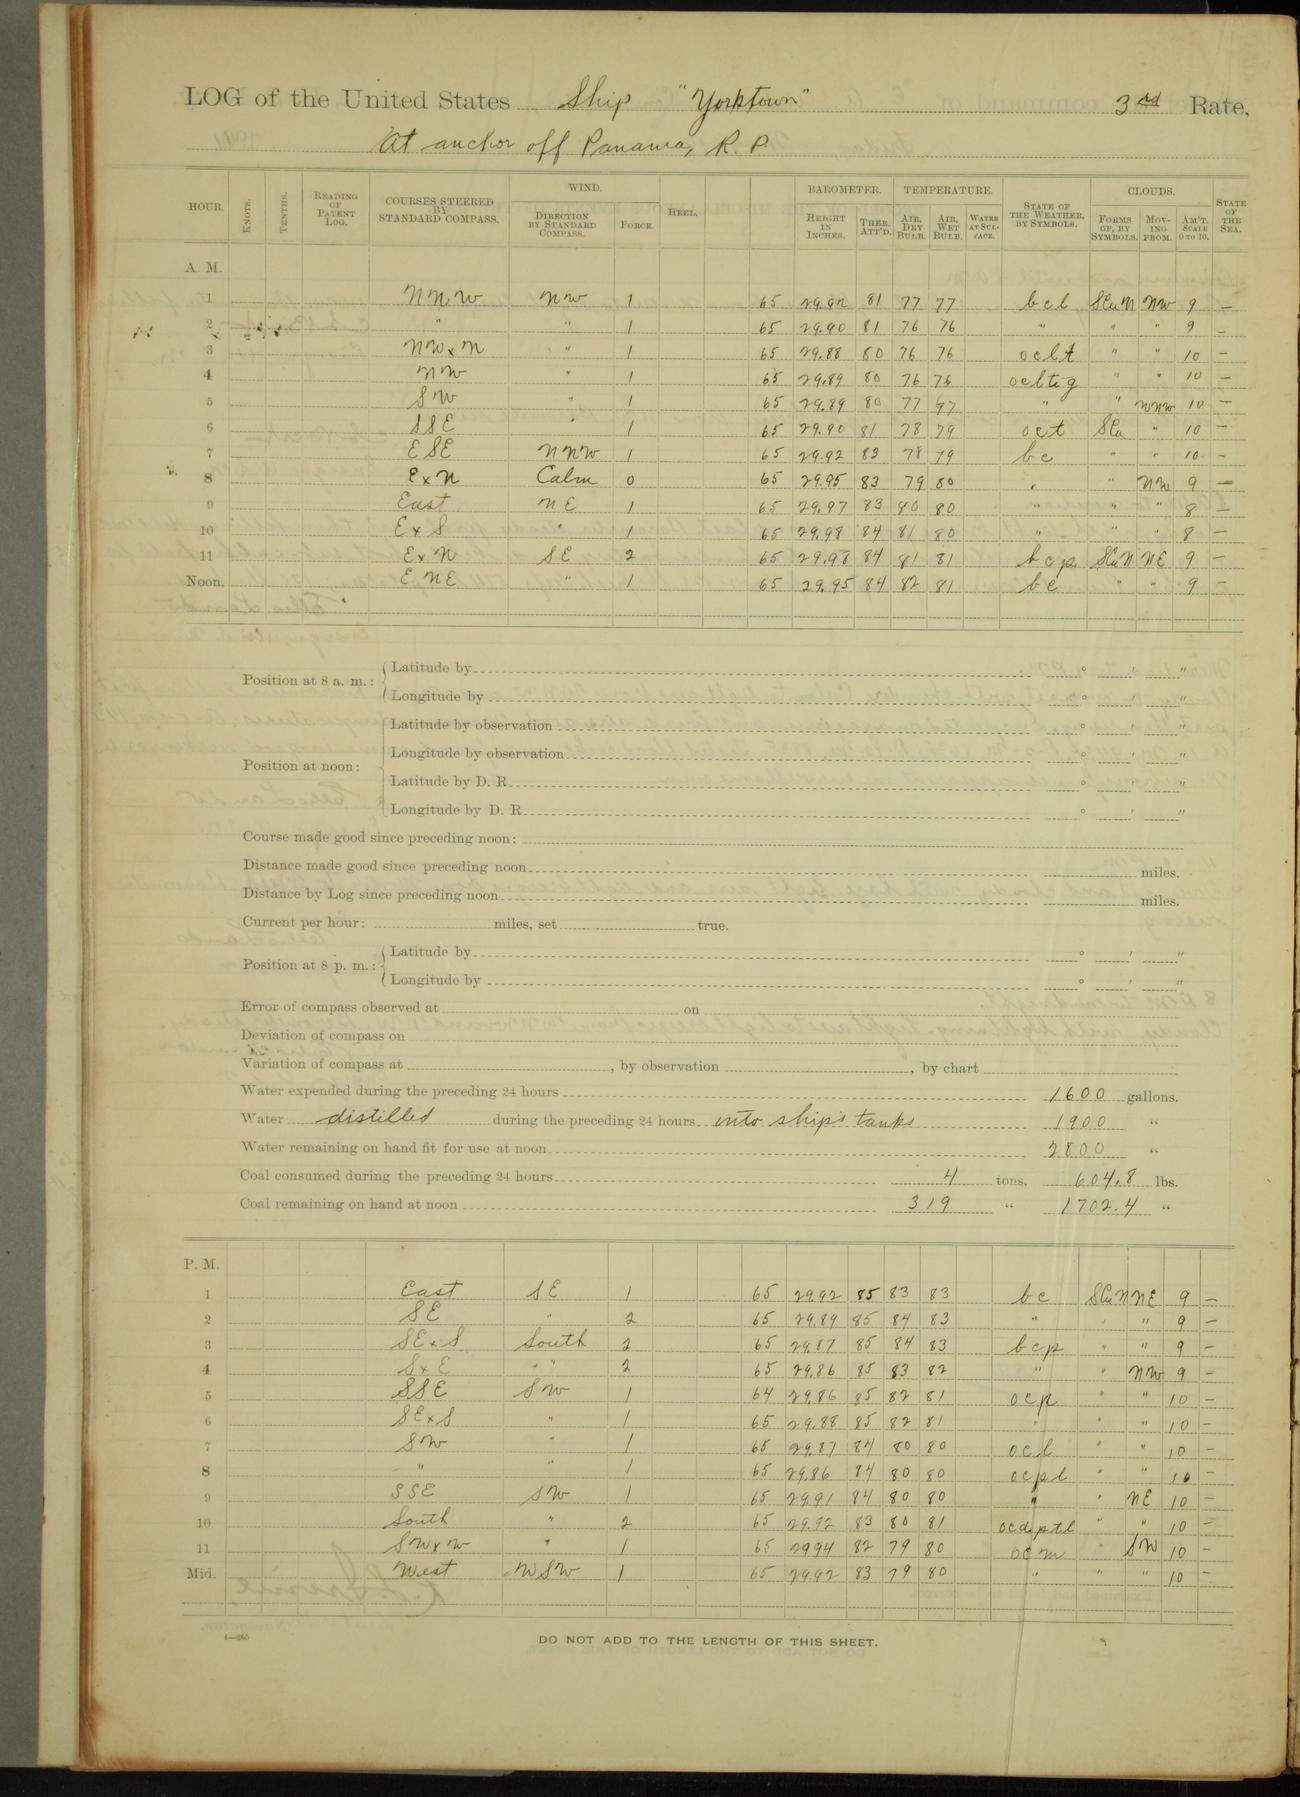 LOG of the United States Ship "Yorktown" 3rd Rate,
At anchor off Panama, R. P.
HOUR. KNOTS. TENTHS. READING OF PATENT LOG. COURSES STEERED BY STANDARD COMPASS. WIND. DIRECTION BY STANDARD COMPASS. FORCE. HEEL. BAROMETER. HEIGHT IN INCHES. THER. ATT'D. TEMPERATURE. AIR, DRY BULB. AIR, WET BULB. WATER AT SURFACE. STATE OF THE WEATHER, BY SYMBOLS. CLOUDS. FORMS OF, BY SYMBOLS. MOVING FROM. AM'T. SCALE 0 TO 10. STATE OF THE SEA.
A. M.
1 NNW NW 1 65 29.92 81 77 77 bcl SCuN NW 9 –
2 " " 1 65 29.90 81 76 76 " " " 9 –
3 NWxN " 1 65 29.88 80 76 76 oclt " " 10 –
4 NW " 1 65 29.89 80 76 76 ocltg " " 10 –
5 SW " 1 65 29.89 80 77 77 " " WNW 10 –
6 SSE " 1 65 29.90 81 78 79 oct SCu " 10 –
7 ESE NNW 1 65 29.92 83 78 79 bc " " 10 –
8 ExN Calm 0 65 29.95 83 79 80 " " NW 9 –
9 East NE 1 65 29.97 83 80 80 " " " 8 –
10 ExS " 1 65 29.98 84 81 80 " " " 8 –
11 ExN SE 2 65 29.98 84 81 81 bcp SCuN NE 9 –
Noon. ENE " 1 65 29.95 84 82 81 bc " " 9 –
Position at 8 a. m.: Latitude by ° ' "
Longitude by ° ' "
Position at noon: Latitude by observation ° ' "
Longitude by observation ° ' "
Latitude by D. R. ° ' "
Longitude by D. R. ° ' "
Course made good since preceding noon:
Distance made good since preceding noon miles.
Distance by Log since preceding noon miles.
Current per hour: miles, set true.
Position at 8 p. m.: Latitude by ° ' "
Longitude by ° ' "
Error of compass observed at on
Deviation of compass on
Variation of compass at , by observation , by chart
Water expended during the preceding 24 hours 1600 gallons.
Water distilled during the preceding 24 hours into ship's tanks 1900 "
Water remaining on hand fit for use at noon 2800 "
Coal consumed during the preceding 24 hours 4 tons, 604.8 lbs.
Coal remaining on hand at noon 319 " 1702.4 "
P. M.
1 East SE 1 65 29.92 85 83 83 bc SCuN NE 9 –
2 SE " 2 65 29.89 85 84 83 " " " 9 –
3 SExS South 2 65 29.87 85 84 83 bcp " " 9 –
4 SxE " " 2 65 29.86 85 83 82 " " NW 9 –
5 SSE SW 1 64 29.86 85 82 81 ocp " " 10 –
6 SExS " 1 65 29.88 85 82 81 " " " 10 –
7 SW " 1 65 29.87 84 80 80 ocl " " 10 –
8 " " 1 65 29.86 84 80 80 ocpl " " 10 –
9 SSE SW 1 65 29.91 84 80 80 " " NE 10 –
10 South " 2 65 29.92 83 80 81 ocdptl " " 10 –
11 SWxW " 1 65 29.94 82 79 80 ocm " SW 10 –
Mid. West WSW 1 65 29.92 83 79 80 " " " 10 –
4—265
DO NOT ADD TO THE LENGTH OF THIS SHEET.